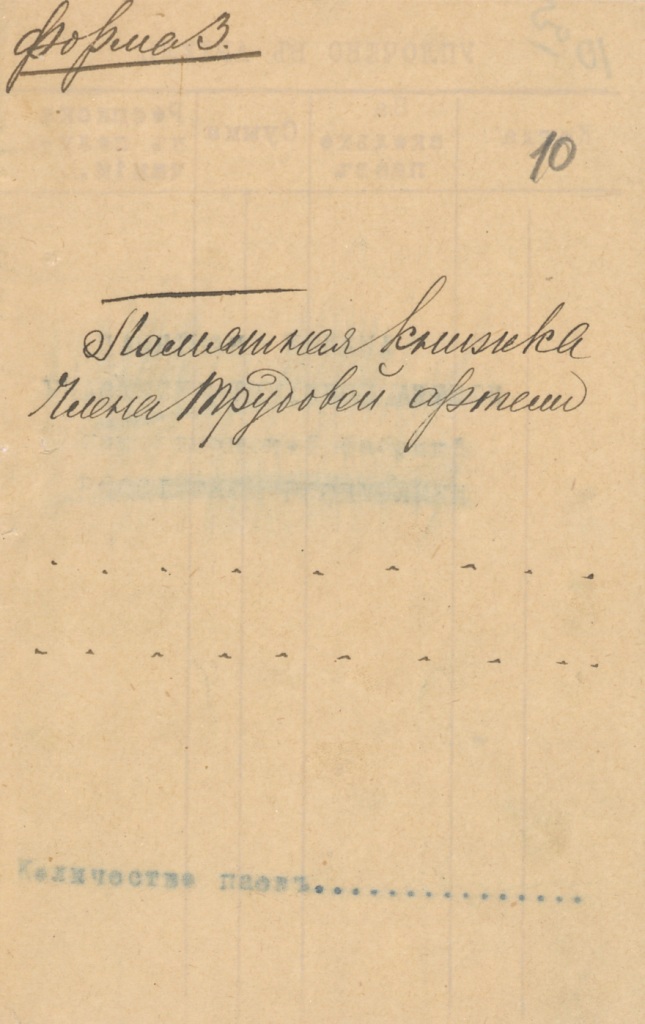 форма 3.
10
Памятная книжка
Члена Трудовой артели
Количество паевъ................